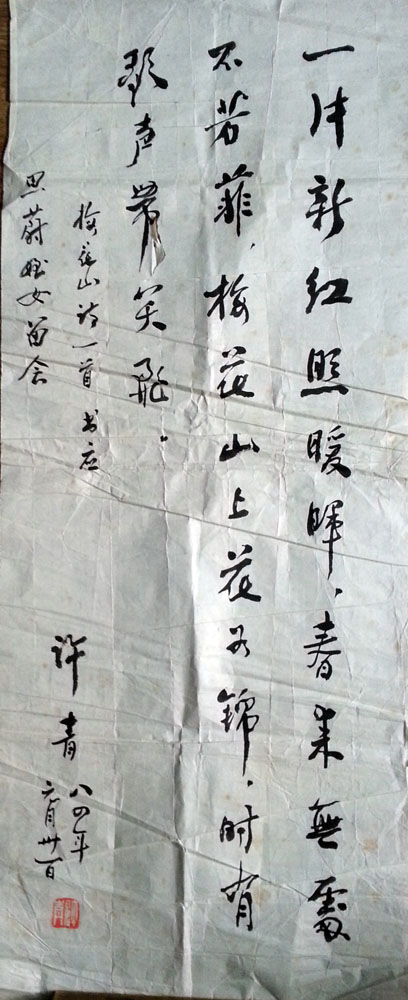 一片新红照暖晖，春来無處
不芳菲，梅花山上花如锦，时有
歌声带笑飛。
梅花山诗一首 书应
思蔚侄女留念
许青
八四年
六月廿一日